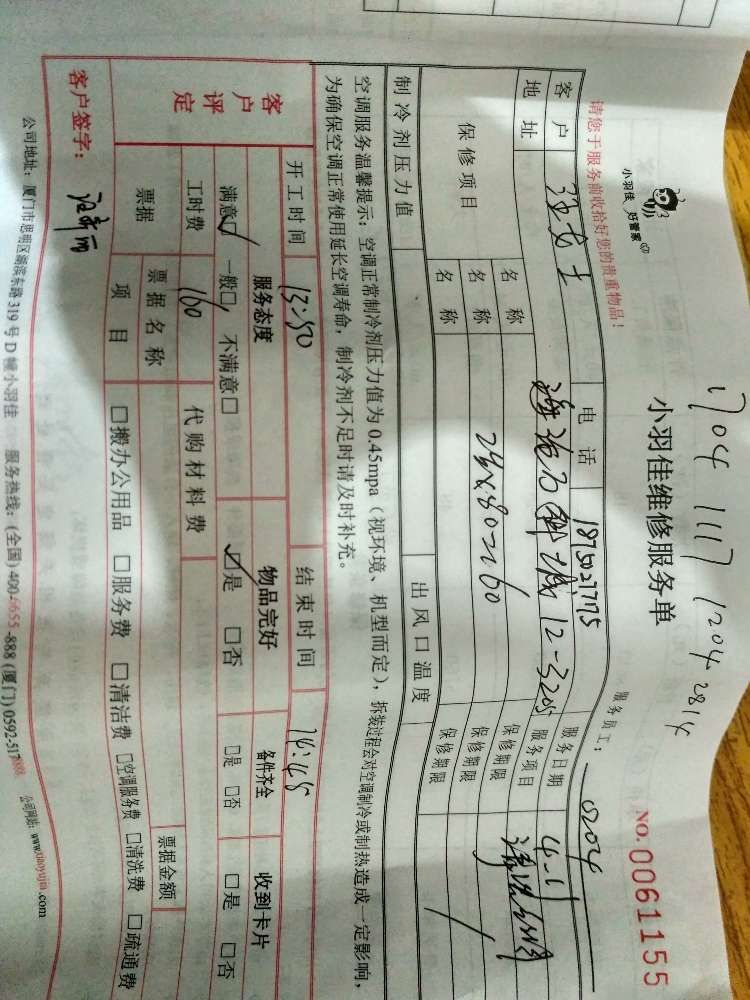 1704 1117 1204 2814
小羽佳 好管家
小羽佳维修服务单
NO.0061155
请您于服务前收拾好您的贵重物品！
服务员工：
0204
客户
电话
服务日期
4-11
地址
12-3205
服务项目
保修项目
名称
保修期限
名称
2台×80=160
保修期限
名称
保修期限
制冷剂压力值
出风口温度
空调服务温馨提示：空调正常制冷剂压力值为0.45mpa（视环境、机型而定），拆装过程会对空调制冷或制热造成一定影响，
为确保空调正常使用延长空调寿命，制冷剂不足时请及时补充。
开工时间
13:50
结束时间
14:45
客户评定
服务态度
物品完好
备件齐全
收到卡片
满意☑ 一般□ 不满意□
☑是 □否
□是 □否
□是 □否
工时费
160
代购材料费
票据
票据名称
票据金额
项目
□搬办公用品 □服务费 □清洁费 □空调服务费 □清洗费 □疏通费
客户签字：
公司地址：厦门市思明区湖滨东路319号D幢小羽佳 服务热线：(全国)400-6655-888 (厦门)0592-517
公司网站：www.xiaoyujia.com